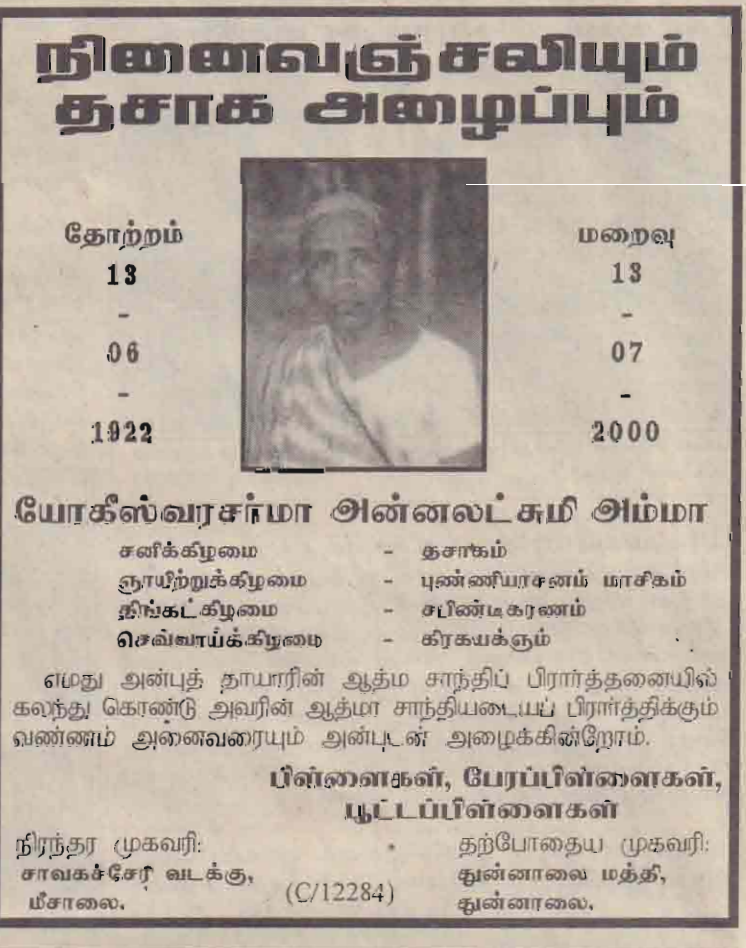 நினைவஞ்சலியும்
தசாக அழைப்பும்
தோற்றம்
13
-
06
-
1922
மறைவு
13
-
07
-
2000
யோகீஸ்வரசர்மா அன்னலட்சுமி அம்மா
சனிக்கிழமை - தசாகம்
ஞாயிற்றுக்கிழமை - புண்ணியாசனம் மாசிகம்
திங்கட்கிழமை - சபிண்டிகரணம்
செவ்வாய்க்கிழமை - கிரகயக்ஞம்
எமது அன்புத் தாயாரின் ஆத்ம சாந்திப் பிரார்த்தனையில்
கலந்து கொண்டு அவரின் ஆத்மா சாந்தியடையப் பிரார்த்திக்கும்
வண்ணம் அனைவரையும் அன்புடன் அழைக்கின்றோம்.
பிள்ளைகள், பேரப்பிள்ளைகள்,
பூட்டப்பிள்ளைகள்
நிரந்தர முகவரி:
சாவகச்சேரி வடக்கு,
மீசாலை.
(C/12284)
தற்போதைய முகவரி:
துன்னாலை மத்தி,
துன்னாலை.